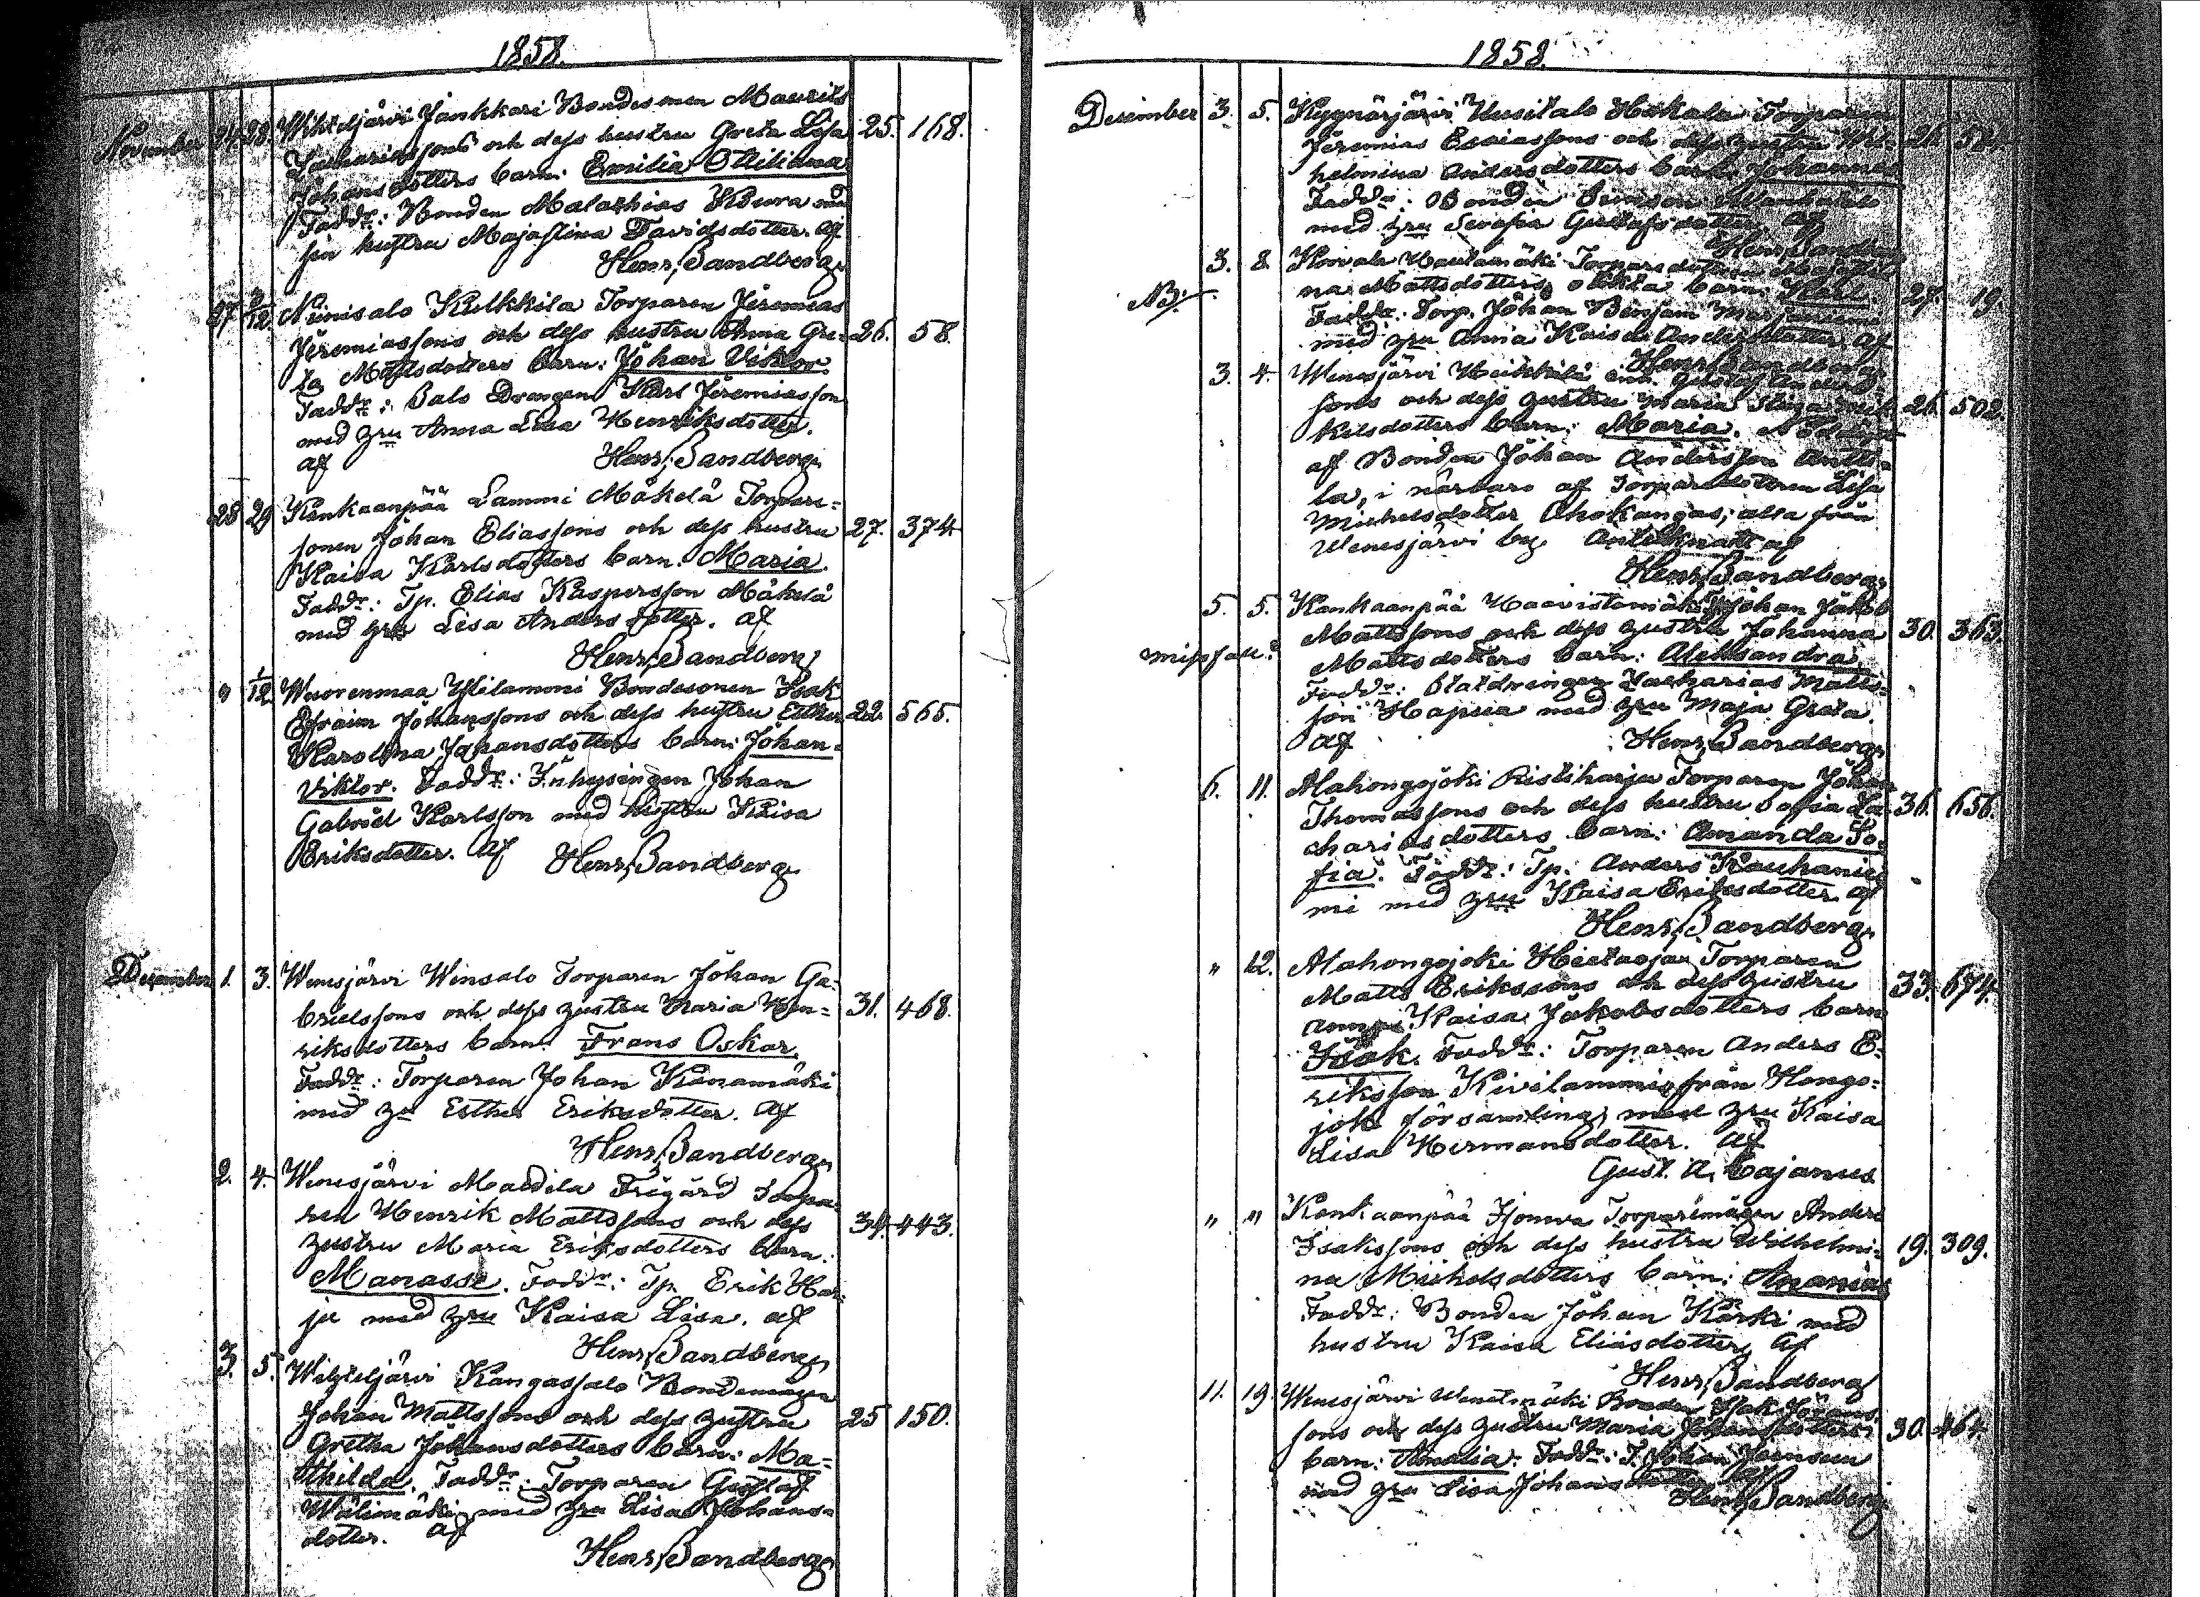 1858.
November 24. 28. Wihteljärvi Jankkari Bondesonen Maurits
Zachariassons och dess hustru Greta Lisa 25. 168.
Johansdotters barn: Emilia Ottiliana
Faddr: Bonden Malachias Kiura med
sin hustru Majastina Davidsdotter. af
Henr. Sandberg
27 2/12. Niinisalo Kulkkila Torparen Jeremias
Jeremiassons och dess hustru Anna Gre- 26. 58.
ta Mattsdotters barn: Johan Viktor.
Faddr: Salo Drängen Karl Jeremiasson
med hru Anna Lisa Henriksdotter.
af Henr. Sandberg
28 29 Kankaanpää Lammi Mäkelä Torpare-
sonen Johan Eliassons och dess hustru 27. 374
Kaisa Karlsdotters barn: Maria.
Faddr: Tp. Elias Kaspersson Mäkelä
med hru Lisa Andersdotter. af
Henr. Sandberg
" 1/12. Wuorenmaa Kilammi Bondesonen Isak
Efraim Johanssons och dess hustru Esther 22. 565.
Karolina Johansdotters barn: Johan
Viktor. Faddr: Inhysingen Johan
Gabriel Karlsson med hustru Kaisa
Eriksdotter. af Henr. Sandberg
December 1. 3. Wenesjärvi Winsalo Torparen Johan Ga-
brielssons och dess hustru Maria Hen- 31. 468.
riksdotters barn: Frans Oskar.
Faddr: Torparen Johan Kanamäki
med hu Esther Eriksdotter. af
Henr. Sandberg
2. 4. Wenesjärvi Mardila Frigård Torpa-
ren Henrik Mattssons och dess 34. 443.
hustru Maria Eriksdotters barn:
Manasse. Faddr: Tp. Erik Har-
ju med hru Kaisa Lisa. af
Henr. Sandberg
3. 5. Wihteljärvi Kangassalo Bondemågen
Johan Mattssons och dess hustru 25 150.
Gretha Johansdotters barn: Ma-
thilda. Faddr: Torparen Gustaf
Wälimäki med hru Lisa Johans-
dotter. af
Henr. Sandberg
1858.
December 3. 5. Kyynärjärvi Uusitalo Hakala Torparen
Jeremias Esaiassons och dess hustru Wil- 26.
helmina Andersdotters barn: Johannes
Faddr: Bonden
med hru Serafia Gustafsdotter. af
Henr. Sandberg
3. 8. Torparedottren
NB. na Mattsdotters oäkta barn: 27. 19.
Faddr: Torp. Johan Benjam
med hru Anna Kaisa Andersdotter. af
Henr. Sandberg
3. 4. Wenesjärvi Heikkilä Gustaf Anders-
sons och dess hustru Maria Mik- 26. 502.
kelsdotters barn: Maria. Nöddöpt
af Bonden Johan Andersson Antti-
la, i närvaro af Torparedottren Lisa
Michelsdotter Ahokangas, alla från
Wenesjärvi by. Antecknadt af
Henr. Sandberg
5. 5. Kankaanpää Haavistomäki Johan Jakob
Mattssons och dess hustru Johanna 30. 363.
Mattsdotters barn: Aleksandra.
Faddr: Statdrengen Zacharias Matts-
son Hapua med hru Maja Greta.
af Henr. Sandberg
6. 11. Alahongojoki Ristiharju Torparen Johan
Thomassons och dess hustru Sofia Za- 36. 656.
chariasdotters barn: Amanda So-
fia. Faddr: Tp. Anders Kauhanie-
mi med hru Kaisa Eriksdotter. af
Henr. Sandberg
" 12. Alahongojoki Hietaoja Torparen
Matts Erikssons och dess hustru 33. 674.
Anna Kaisa Jakobsdotters barn
Isak. Faddr: Torparen Anders E-
riksson Kivilammi, från Hongo-
joki församling, med hru Kaisa
Lisa Hermansdotter. af
Gust. A. Cajanus
" " Kankaanpää Torparemågen Anders
Isakssons och dess hustru Wilhelmi- 19. 309.
na Michelsdotters barn: Ananias
Faddr: Bonden Johan Kärki med
hustru Kaisa Eliasdotter. af
Henr. Sandberg
11. 19. Wenesjärvi Bonden Isak Johans-
sons och dess hustru Maria 30. 464.
barn: Amalia. Faddr: Johan
med hru Lisa Johansdotter af
Henr. Sandberg